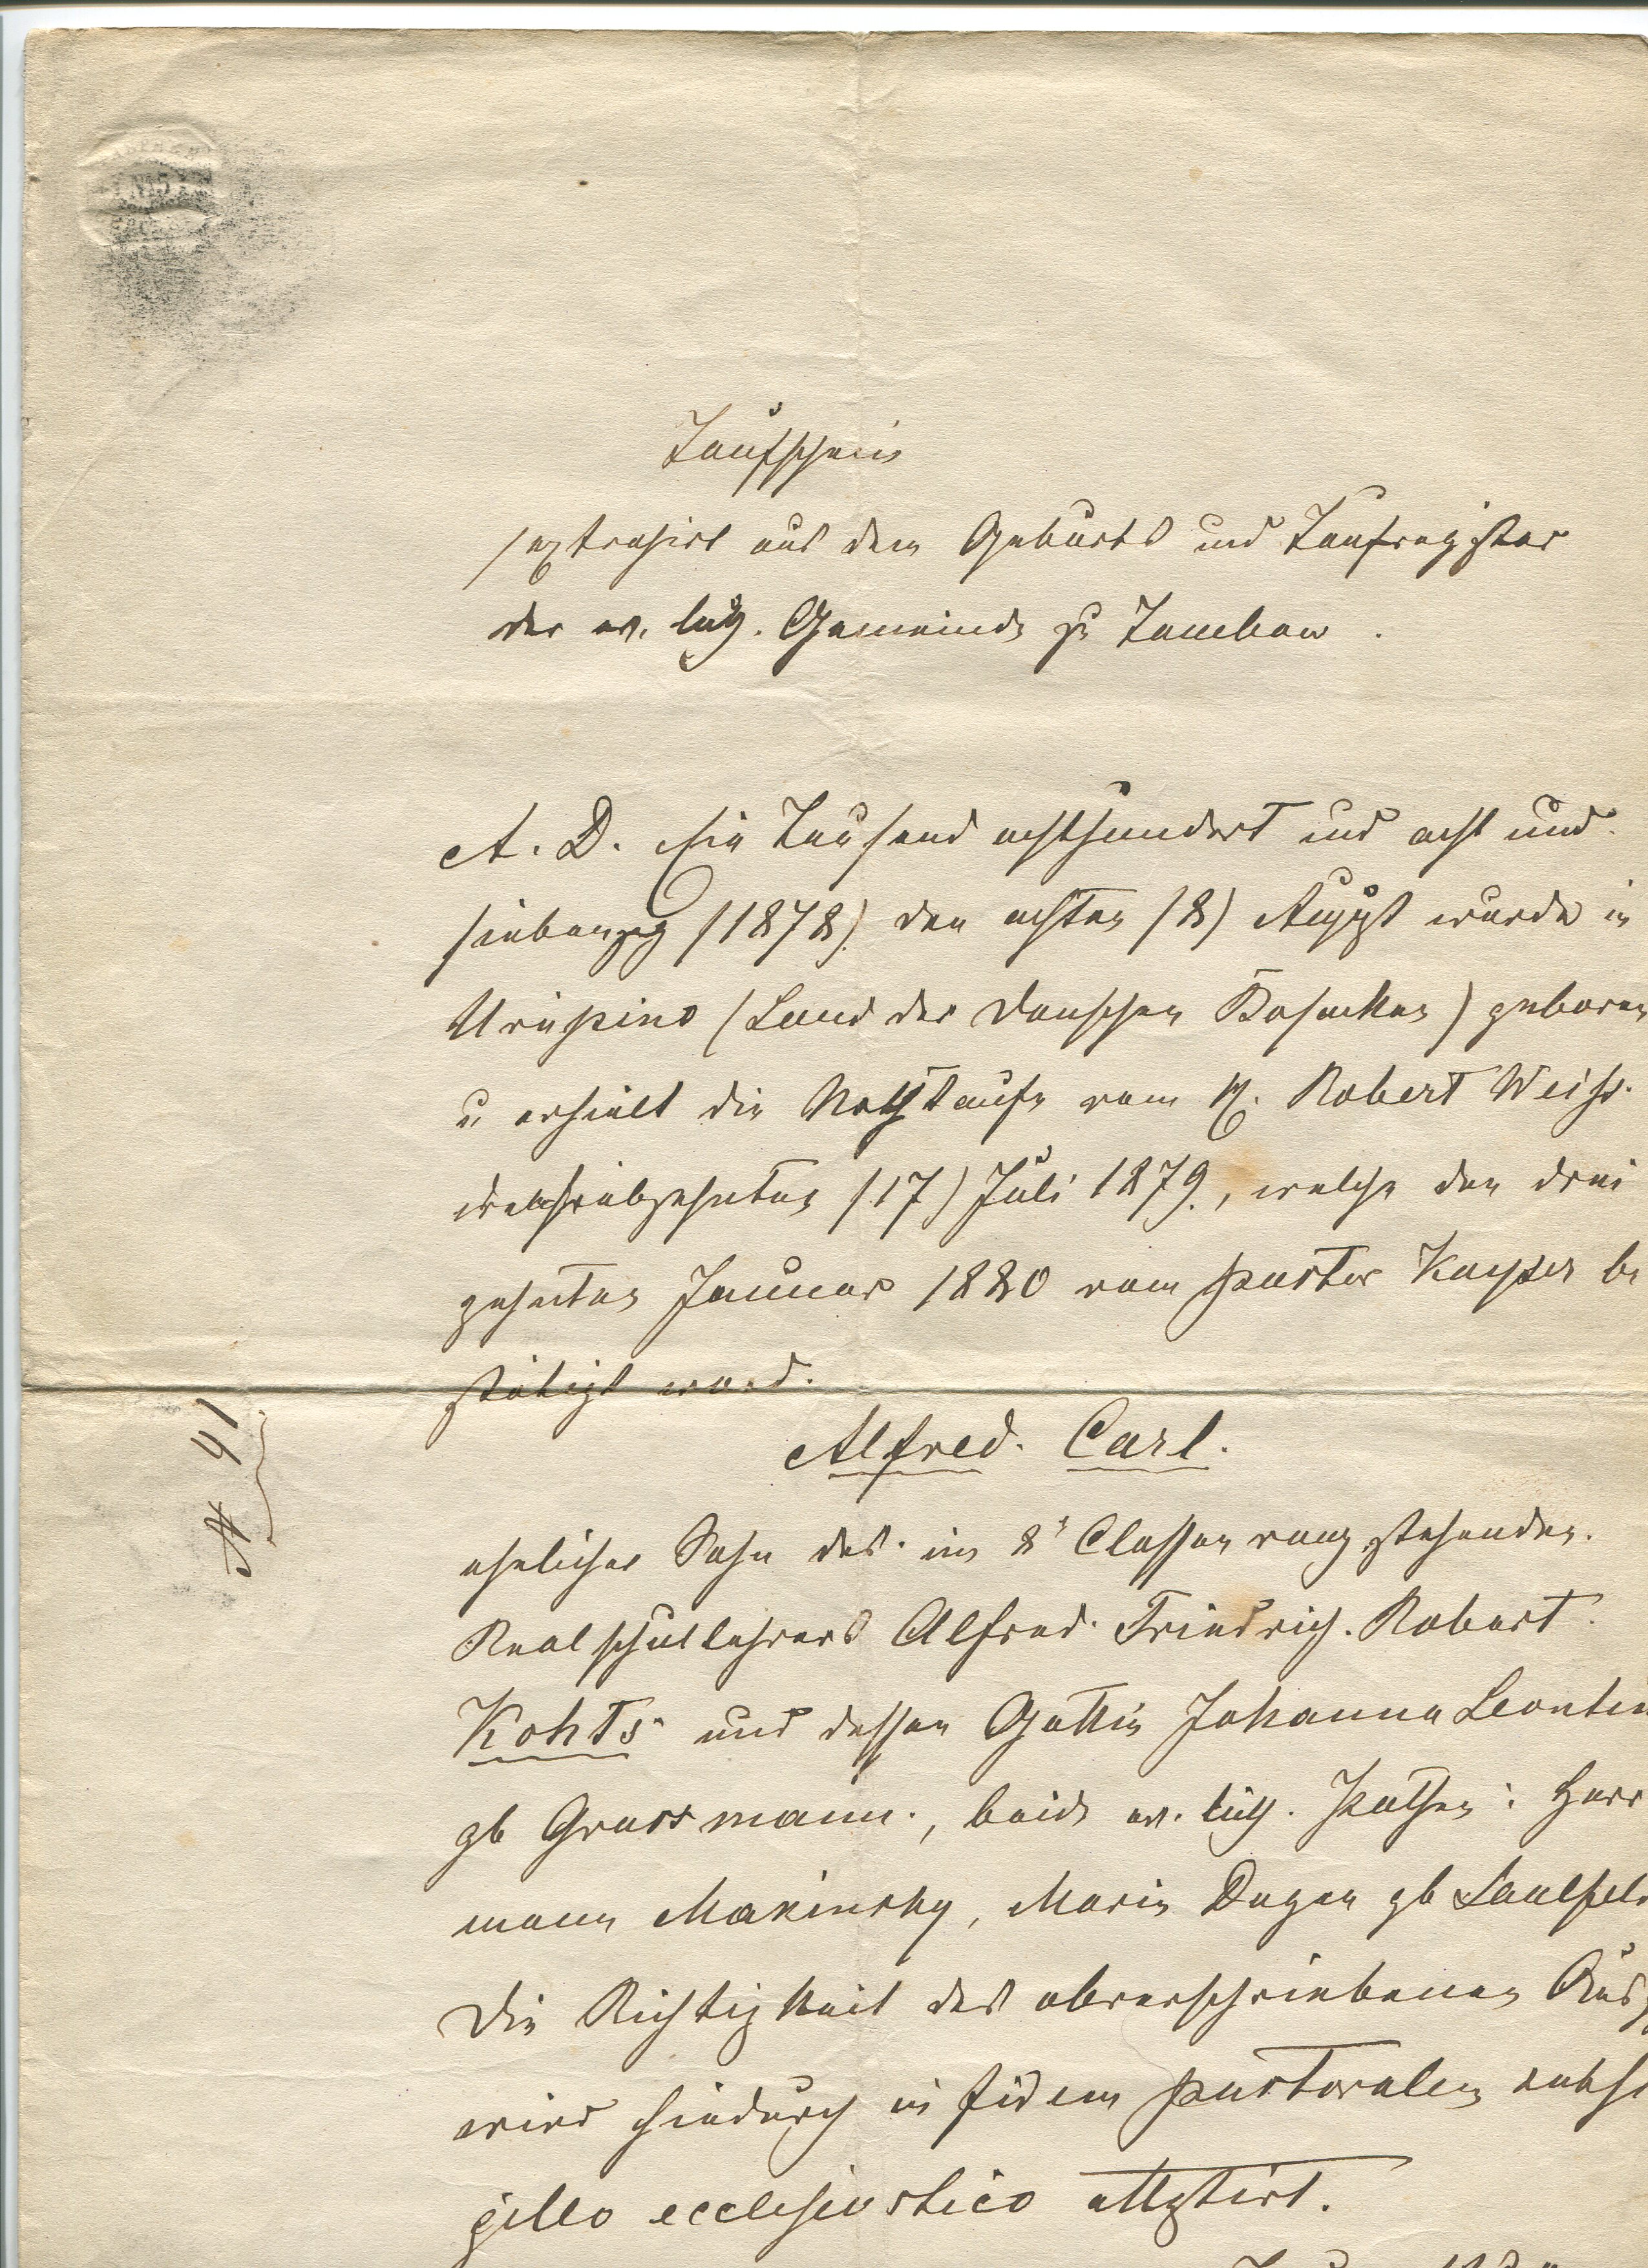 Taufschein
/extrahirt aus dem Geburts und Taufregister
der ev. luth. Gemeinde zu Tambow.
A. D. Ein Tausend achthundert und acht und
siebenzig /1878/ den achten /8/ August wurde in
Urüpino (Land der Donschen Kosacken) geboren
u erhielt die Nothtaufe vom H. Robert Weiss.
siebzehnten /17/ Juli 1879., welche den drei
zehnten Januar 1880 vom Pastor Kayser be
stätigt ward.
Alfred. Carl.
№ 41
ehelicher Sohn des. im 8t Classen rang stehenden.
Realschullehrers Alfred. Friedrich. Robert.
Kohts und dessen Gattin Johanna Leontin
gb Grassmann., beide ev. luth. Pathen: Herr
mann Makinsky, Marie Dogen gb
Die Richtigkeit des obverschriebenen Ausz
wird hiedurch in fidem pastoralem sub si
gillo ecclesiastico attestirt.